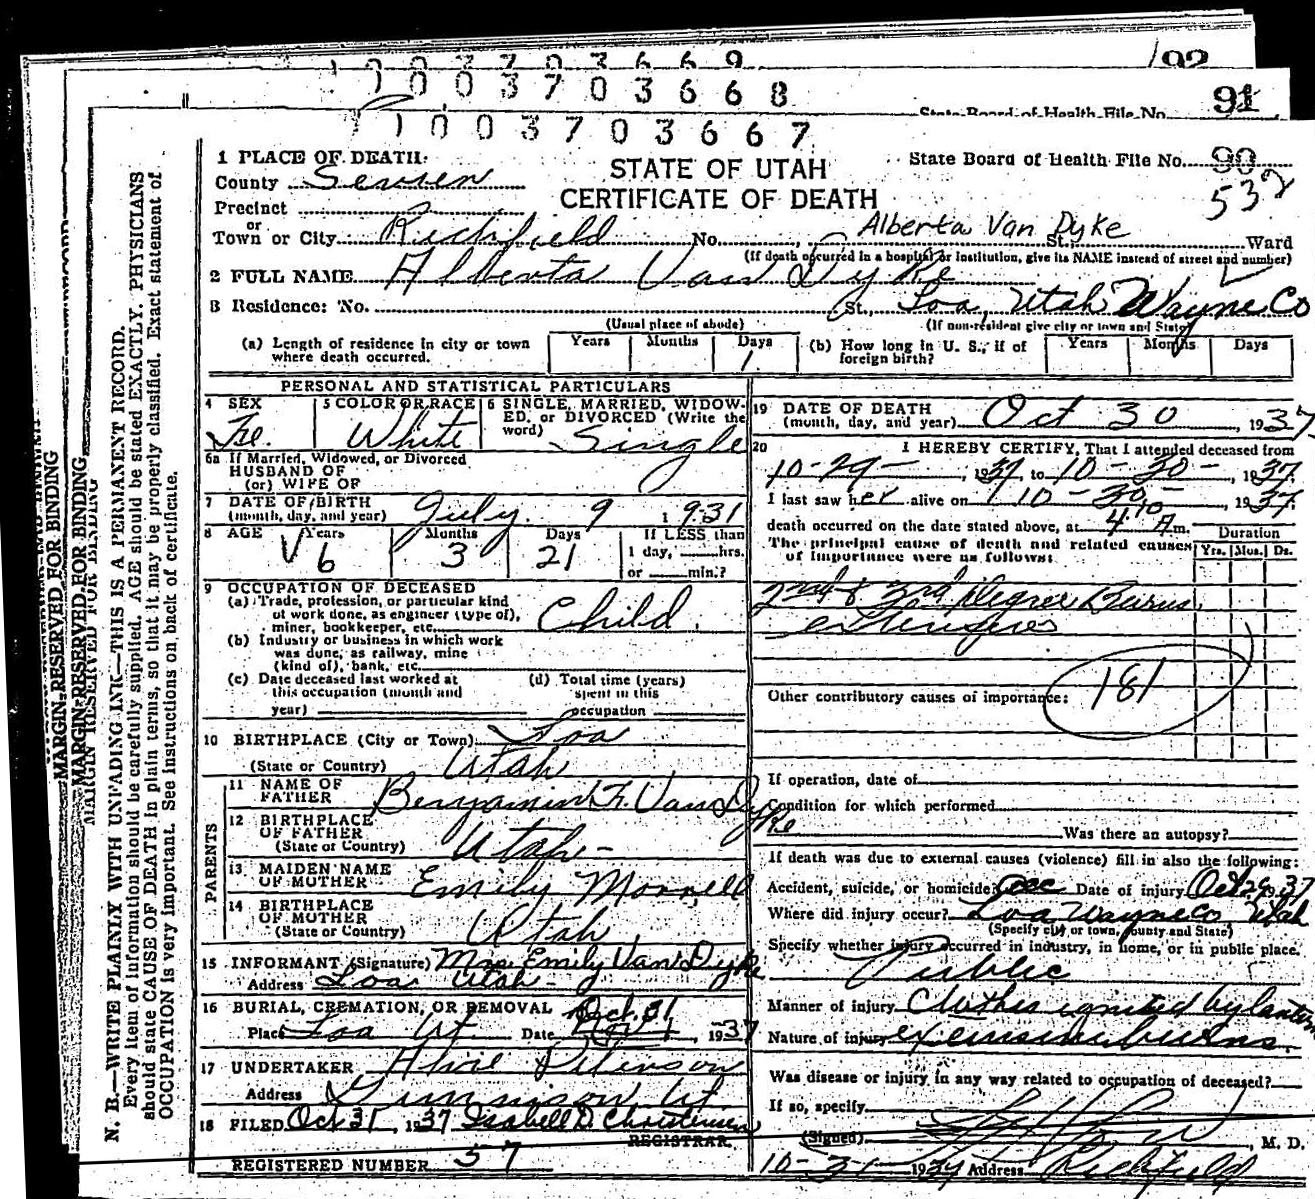 1003703669
192
1003703668
State Board of Health File No. 91
1003703667
1 PLACE OF DEATH:
STATE OF UTAH
State Board of Health File No. 90
County Sevier
CERTIFICATE OF DEATH
532
Precinct
or
Town or City Richfield No. , Alberta Van Dyke St., Ward
(If death occurred in a hospital or institution, give its NAME instead of street and number)
2 FULL NAME Alberta Van Dyke
3 Residence: No. St., Loa, Utah Wayne Co
(Usual place of abode) (If non-resident give city or town and State)
(a) Length of residence in city or town where death occurred. Years Months Days 1
(b) How long in U. S., if of foreign birth? Years Months Days
PERSONAL AND STATISTICAL PARTICULARS
4 SEX Fe.
5 COLOR OR RACE White
6 SINGLE, MARRIED, WIDOWED, or DIVORCED (Write the word) Single
6a If Married, Widowed, or Divorced
HUSBAND OF
(or) WIFE OF
7 DATE OF BIRTH
(month, day, and year) July 9 1931
8 AGE Years 6 Months 3 Days 21 If LESS than
1 day, hrs.
or min.?
9 OCCUPATION OF DECEASED
(a) Trade, profession, or particular kind
of work done, as engineer (type of),
miner, bookkeeper, etc. Child
(b) Industry or business in which work
was done, as railway, mine
(kind of), bank, etc.
(c) Date deceased last worked at
this occupation (month and
year)
(d) Total time (years)
spent in this
occupation
10 BIRTHPLACE (City or Town) Loa
(State or Country) Utah
PARENTS
11 NAME OF
FATHER Benjamin F. Van Dyke
12 BIRTHPLACE
OF FATHER
(State or Country) Utah -
13 MAIDEN NAME
OF MOTHER Emily Morrell
14 BIRTHPLACE
OF MOTHER
(State or Country) Utah
15 INFORMANT (Signature) Mrs. Emily Van Dyke
Address Loa Utah -
16 BURIAL, CREMATION, OR REMOVAL Oct. 31
Place Loa Ut. Date Nov 1, 1937
17 UNDERTAKER Peterson
Address Gunnison Ut
18 FILED Oct 31, 1937 Isabell D. Christensen
REGISTRAR
REGISTERED NUMBER 57
19 DATE OF DEATH
(month, day, and year) Oct 30, 1937
20 I HEREBY CERTIFY, That I attended deceased from
10-29-, 1937, to 10-30-, 1937.
I last saw her alive on 10-30-, 1937.
death occurred on the date stated above, at 4 10 A m.
The principal cause of death and related causes
of importance were as follows:
Duration
Yrs. Mos. Ds.
2nd & 3rd Degree Burns
extensive
Other contributory causes of importance:
181
If operation, date of
Condition for which performed
Was there an autopsy?
If death was due to external causes (violence) fill in also the following:
Accident, suicide, or homicide? acc Date of injury Oct 29 1937
Where did injury occur? Loa Wayne Co Utah
(Specify city or town, county and State)
Specify whether injury occurred in industry, in home, or in public place.
Public
Manner of injury Clothes ignited by lantern
Nature of injury extensive burns.
Was disease or injury in any way related to occupation of deceased?
If so, specify
(Signed) , M. D.
10-31-1937 Address Richfield
MARGIN RESERVED FOR BINDING
MARGIN RESERVED FOR BINDING
MARGIN RESERVED FOR BINDING
N. B.—WRITE PLAINLY WITH UNFADING INK—THIS IS A PERMANENT RECORD.
Every item of information should be carefully supplied. AGE should be stated EXACTLY. PHYSICIANS
should state CAUSE OF DEATH in plain terms, so that it may be properly classified. Exact statement of
OCCUPATION is very important. See instructions on back of certificate.